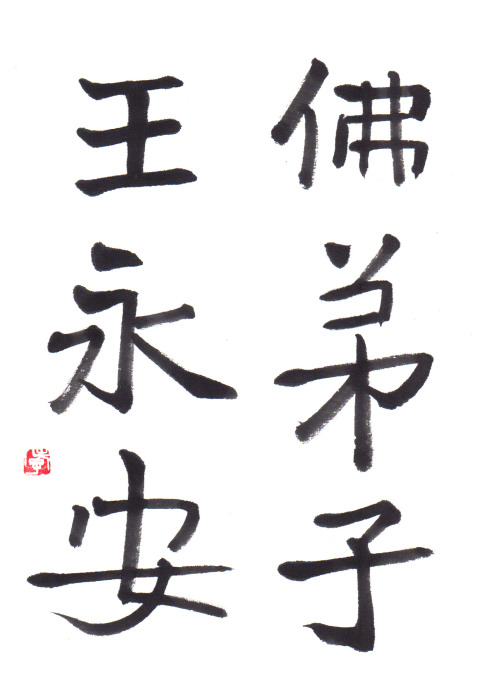 佛弟子
王永安